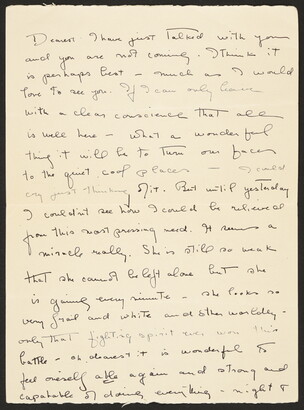 Dearest I have just talked with you
and you are not coming. I think it
is perhaps best – much as I would
love to see you. If I can only leave
with a clear conscience that all
is well here – what a wonderful
thing it will be to turn our faces
to the quiet cool places – I could
cry just thinking of it. But until yesterday
I couldn't see how I could be relieved
from this most pressing need. It seems a
miracle really. She is still so weak
that she cannot be left alone but she
is gaining every minute – she looks so
very frail and white and other worldly –
only that fighting spirit ever won this
battle – oh dearest it is wonderful to
feel oneself able again and strong and
capable of doing everything – night &